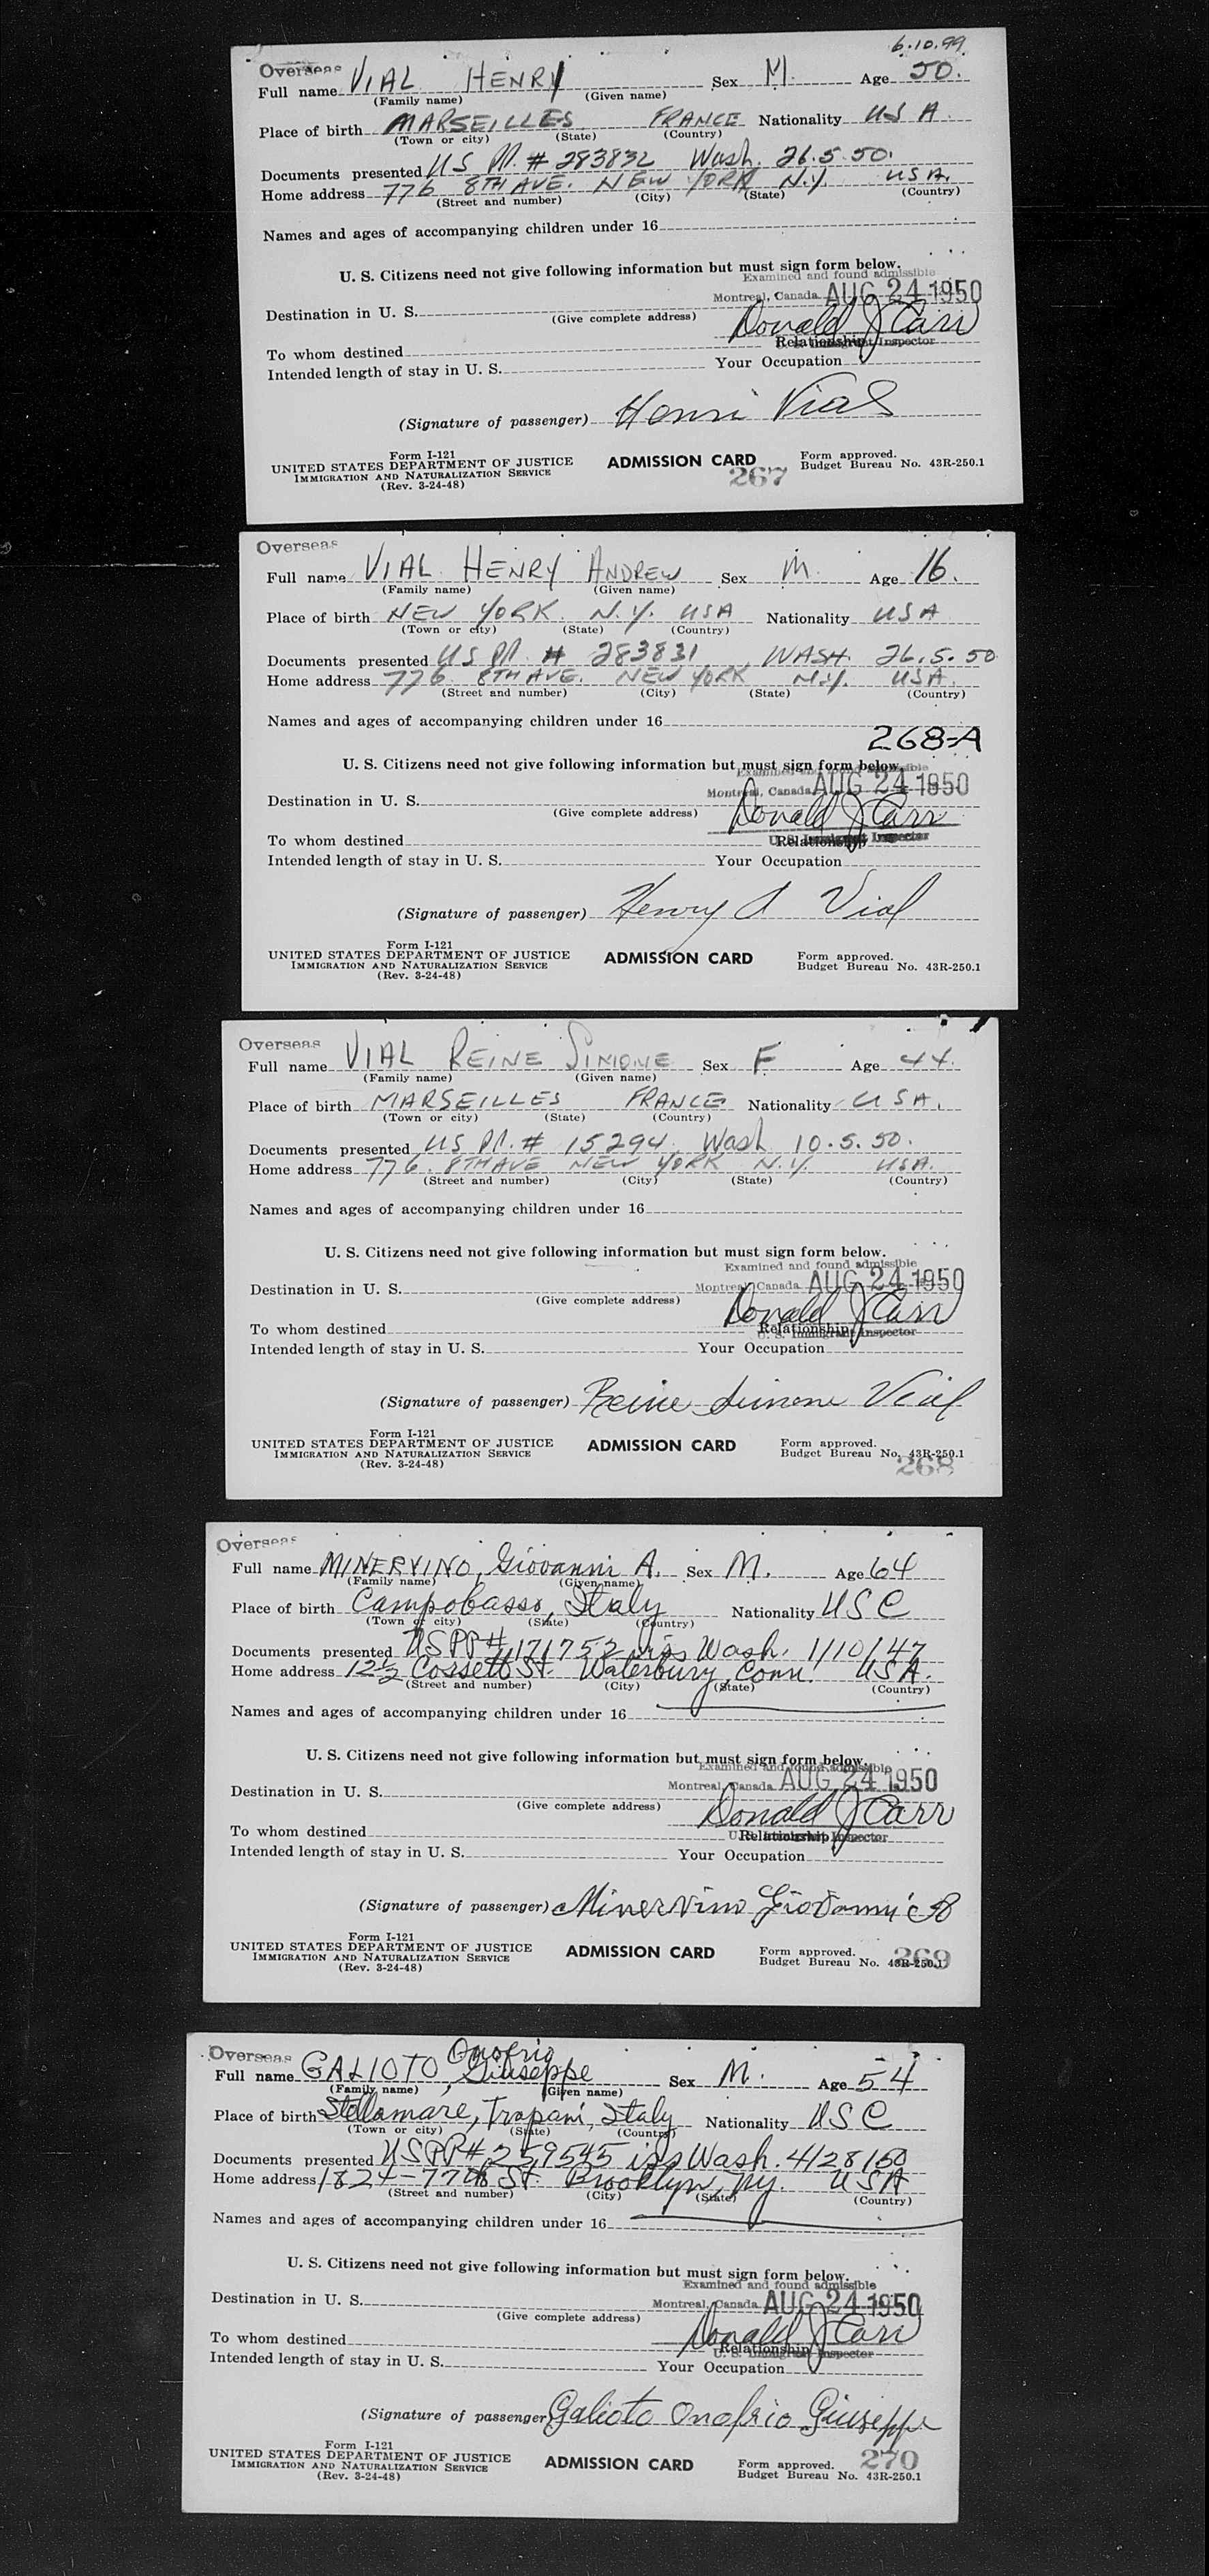 6.10.99
Overseas
Full name VIAL HENRY Sex M. Age 50.
(Family name) (Given name)
Place of birth MARSEILLES FRANCE Nationality US A.
(Town or city) (State) (Country)
Documents presented US PP. # 283832 Wash. 26.5.50.
Home address 776 8TH AVE. NEW YORK N.Y. USA.
(Street and number) (City) (State) (Country)
Names and ages of accompanying children under 16
U. S. Citizens need not give following information but must sign form below.
Examined and found admissible
Montreal, Canada AUG 24 1950
Destination in U. S.
(Give complete address)
Donald J Carr
To whom destined Relationship
U. S. Immigrant Inspector
Intended length of stay in U. S. Your Occupation
(Signature of passenger) Henri Vial
Form I-121
UNITED STATES DEPARTMENT OF JUSTICE ADMISSION CARD Form approved.
IMMIGRATION AND NATURALIZATION SERVICE Budget Bureau No. 43R-250.1
(Rev. 3-24-48)
267
Overseas
Full name VIAL HENRY ANDREW Sex M. Age 16.
(Family name) (Given name)
Place of birth NEW YORK. N.Y. USA Nationality USA
(Town or city) (State) (Country)
Documents presented US PP. # 283831 WASH. 26.5.50
Home address 776 8TH AVE. NEW YORK N.Y. USA.
(Street and number) (City) (State) (Country)
Names and ages of accompanying children under 16
268-A
U. S. Citizens need not give following information but must sign form below.
Examined and found admissible
Montreal, Canada AUG 24 1950
Destination in U. S.
(Give complete address)
Donald J Carr
To whom destined Relationship
U. S. Immigrant Inspector
Intended length of stay in U. S. Your Occupation
(Signature of passenger) Henry A Vial
Form I-121
UNITED STATES DEPARTMENT OF JUSTICE ADMISSION CARD Form approved.
IMMIGRATION AND NATURALIZATION SERVICE Budget Bureau No. 43R-250.1
(Rev. 3-24-48)
Overseas
Full name VIAL REINE SIMONE Sex F Age 44.
(Family name) (Given name)
Place of birth MARSEILLES FRANCE Nationality USA.
(Town or city) (State) (Country)
Documents presented US PP. # 15294. Wash 10.5.50.
Home address 776. 8TH AVE NEW YORK N.Y. USA.
(Street and number) (City) (State) (Country)
Names and ages of accompanying children under 16
U. S. Citizens need not give following information but must sign form below.
Examined and found admissible
Montreal, Canada AUG 24 1950
Destination in U. S.
(Give complete address)
Donald J Carr
To whom destined Relationship
U. S. Immigrant Inspector
Intended length of stay in U. S. Your Occupation
(Signature of passenger) Reine Simone Vial
Form I-121
UNITED STATES DEPARTMENT OF JUSTICE ADMISSION CARD Form approved.
IMMIGRATION AND NATURALIZATION SERVICE Budget Bureau No. 43R-250.1
(Rev. 3-24-48)
268
Overseas
Full name MINERVINO, Giovanni A. Sex M. Age 64
(Family name) (Given name)
Place of birth Campobasso, Italy Nationality USC
(Town or city) (State) (Country)
Documents presented USPP# 171752 iss Wash. 1/10/47
Home address 12 1/2 Cossett St. Waterbury, Conn. USA.
(Street and number) (City) (State) (Country)
Names and ages of accompanying children under 16
U. S. Citizens need not give following information but must sign form below.
Examined and found admissible
Montreal, Canada AUG 24 1950
Destination in U. S.
(Give complete address)
Donald J Carr
To whom destined Relationship
U. S. Immigrant Inspector
Intended length of stay in U. S. Your Occupation
(Signature of passenger) Minervino Giovanni
Form I-121
UNITED STATES DEPARTMENT OF JUSTICE ADMISSION CARD Form approved.
IMMIGRATION AND NATURALIZATION SERVICE Budget Bureau No. 43R-250.1
(Rev. 3-24-48)
269
Overseas
Onofrio
Full name GALIOTO, Giuseppe Sex M. Age 54
(Family name) (Given name)
Place of birth Stellamare, Trapani, Italy Nationality USC
(Town or city) (State) (Country)
Documents presented USPP# 259545 iss Wash. 4/28/50
Home address 1824-77th St. Brooklyn, Ny. USA
(Street and number) (City) (State) (Country)
Names and ages of accompanying children under 16
U. S. Citizens need not give following information but must sign form below.
Examined and found admissible
Montreal, Canada AUG 24 1950
Destination in U. S.
(Give complete address)
Donald J Carr
To whom destined Relationship
U. S. Immigrant Inspector
Intended length of stay in U. S. Your Occupation
(Signature of passenger) Galioto Onofrio Giuseppe
Form I-121
UNITED STATES DEPARTMENT OF JUSTICE ADMISSION CARD Form approved.
IMMIGRATION AND NATURALIZATION SERVICE Budget Bureau No. 43R-250.1
(Rev. 3-24-48)
270